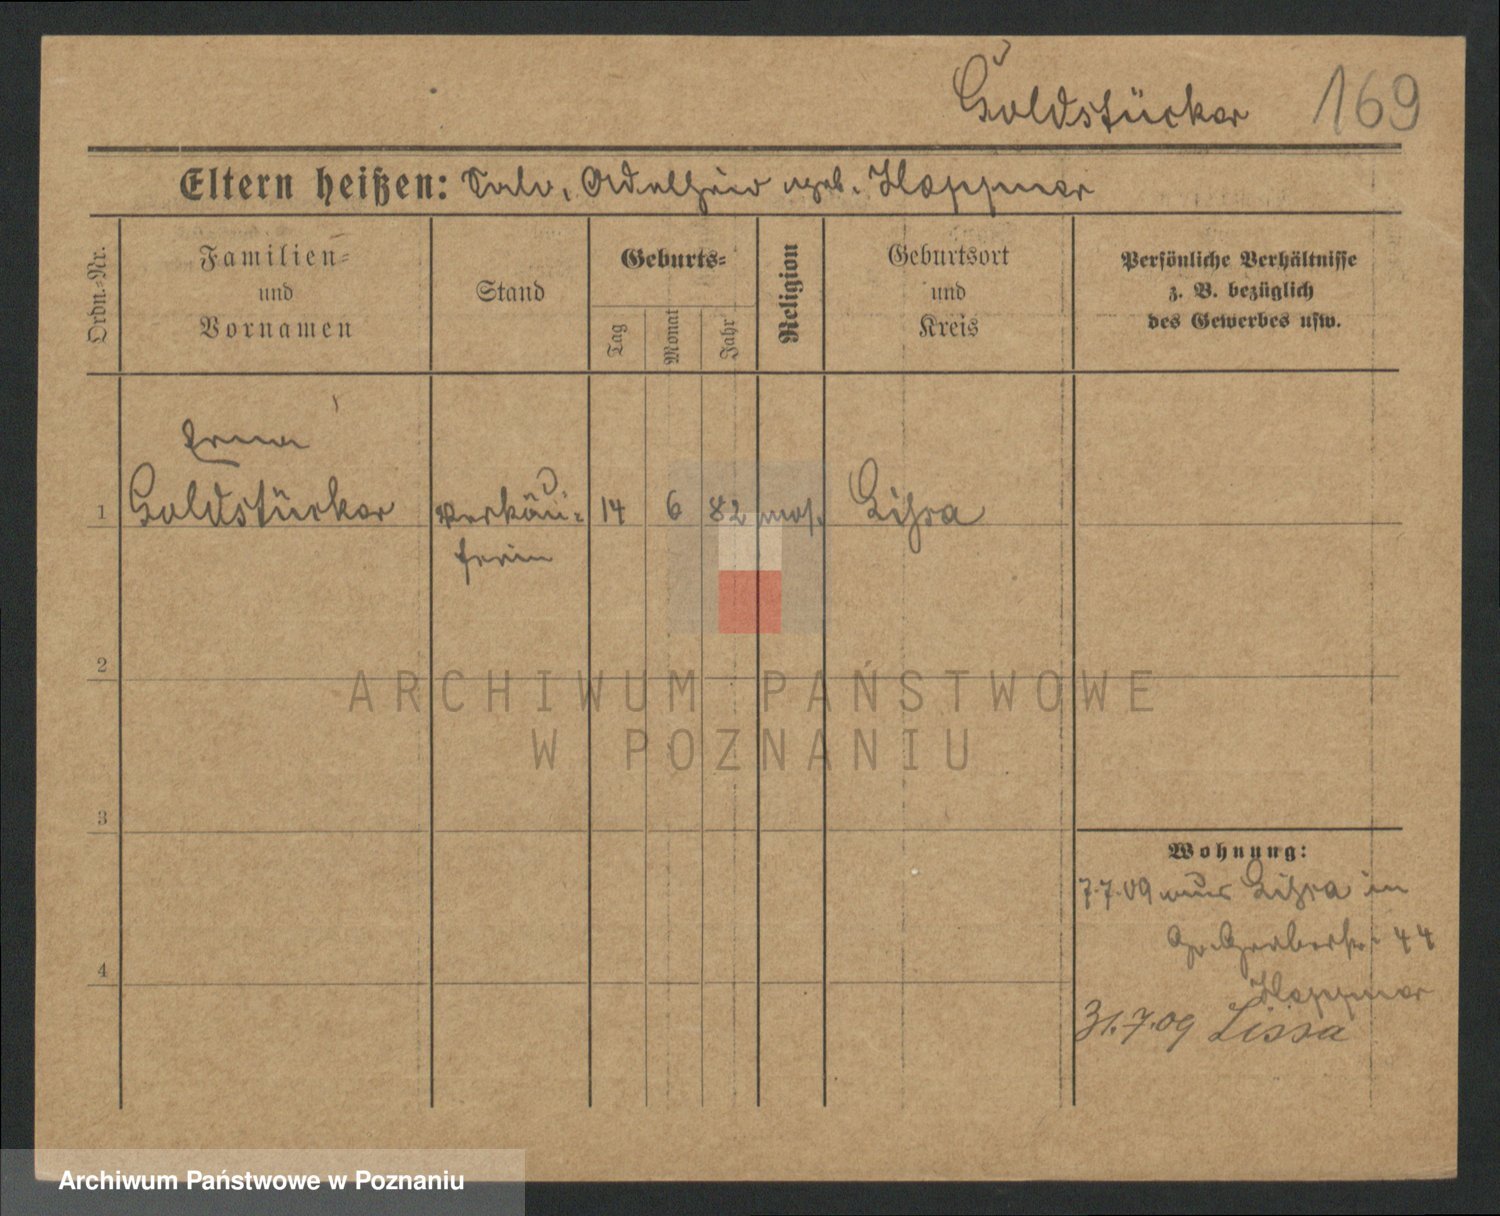 Goldstücker 169
Eltern heißen: Salo, Adelheid geb. Heppner
Ordn.-Nr.
Familien-
und
Vornamen
Stand
Geburts-
Tag
Monat
Jahr
Religion
Geburtsort
und
Kreis
Persönliche Verhältnisse
z. B. bezüglich
des Gewerbes usw.
Erna
1 Goldstücker Verkäu- 14 6 82 mos. Lissa
ferin
2
ARCHIWUM PAŃSTWOWE
W POZNANIU
3
Wohnung:
7.7.09 aus Lissa in
Gr. Gerberstr. 44
4
Heppner
31.7.09 Lissa
Archiwum Państwowe w Poznaniu